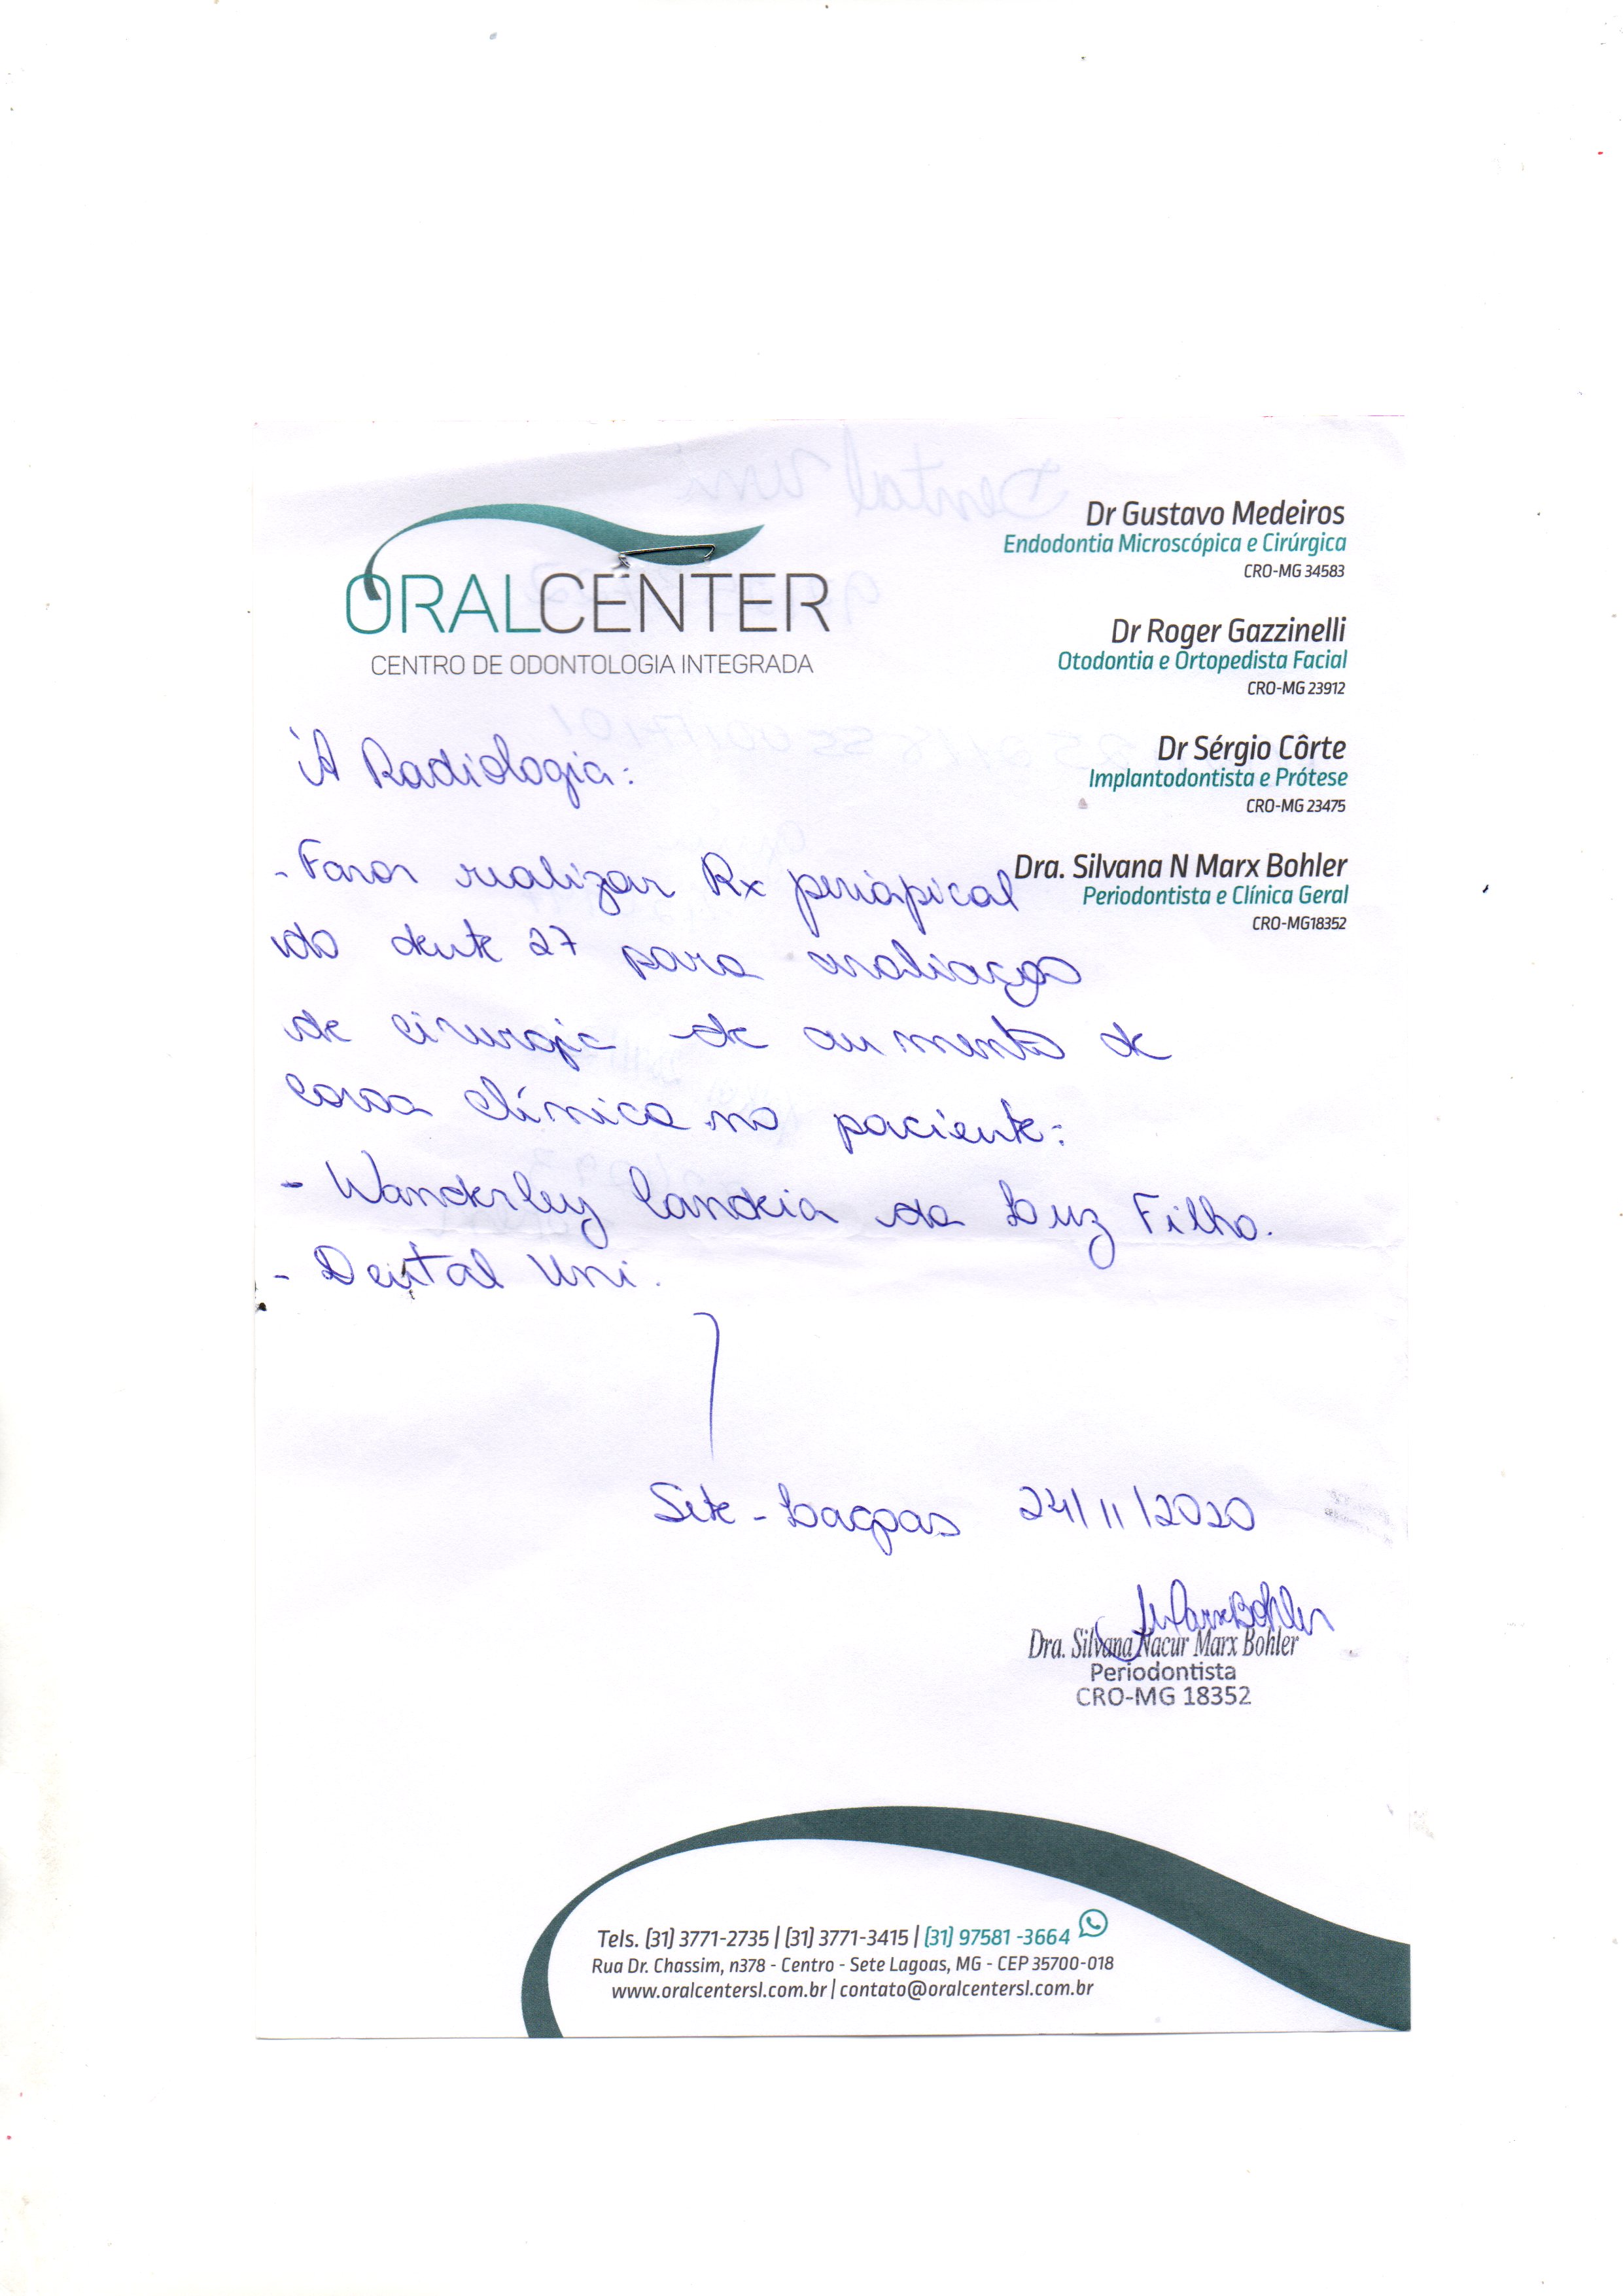 ORALCENTER
CENTRO DE ODONTOLOGIA INTEGRADA
Dr Gustavo Medeiros
Endodontia Microscópica e Cirúrgica
CRO-MG 34583
Dr Roger Gazzinelli
Otodontia e Ortopedista Facial
CRO-MG 23912
Dr Sérgio Côrte
Implantodontista e Prótese
CRO-MG 23475
Dra. Silvana N Marx Bohler
Periodontista e Clínica Geral
CRO-MG18352
À Radiologia:
- Favor realizar Rx periapical
do dente 27 para avaliação
de cirurgia de aumento de
coroa clínica no paciente:
- Wanderley Candeia da Luz Filho.
- Dental Uni.
Sete-Lagoas 24/11/2020
Dra. Silvana Nacur Marx Bohler
Periodontista
CRO-MG 18352
Tels. (31) 3771-2735 | (31) 3771-3415 | (31) 97581 -3664
Rua Dr. Chassim, n378 - Centro - Sete Lagoas, MG - CEP 35700-018
www.oralcentersl.com.br | contato@oralcentersl.com.br